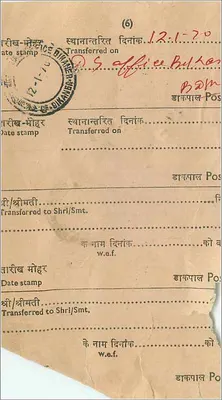 (6)
तारीख-मोहर स्थानान्तरित दिनांक 12-1-70
Date stamp Transferred on
BIKANER
12-1-70
डाकपाल Pos
तारीख-मोहर स्थानान्तरित दिनांक
Date stamp Transferred on
डाकपाल Pos
श्री/श्रीमती
Transferred to Shri/Smt.
के नाम दिनांक को
w.e.f.
तारीख मोहर डाकपाल Pos
Date stamp
श्री/श्रीमती
Transferred to Shri/Smt.
के नाम दिनांक
w.e.f.
डाकपाल Pos